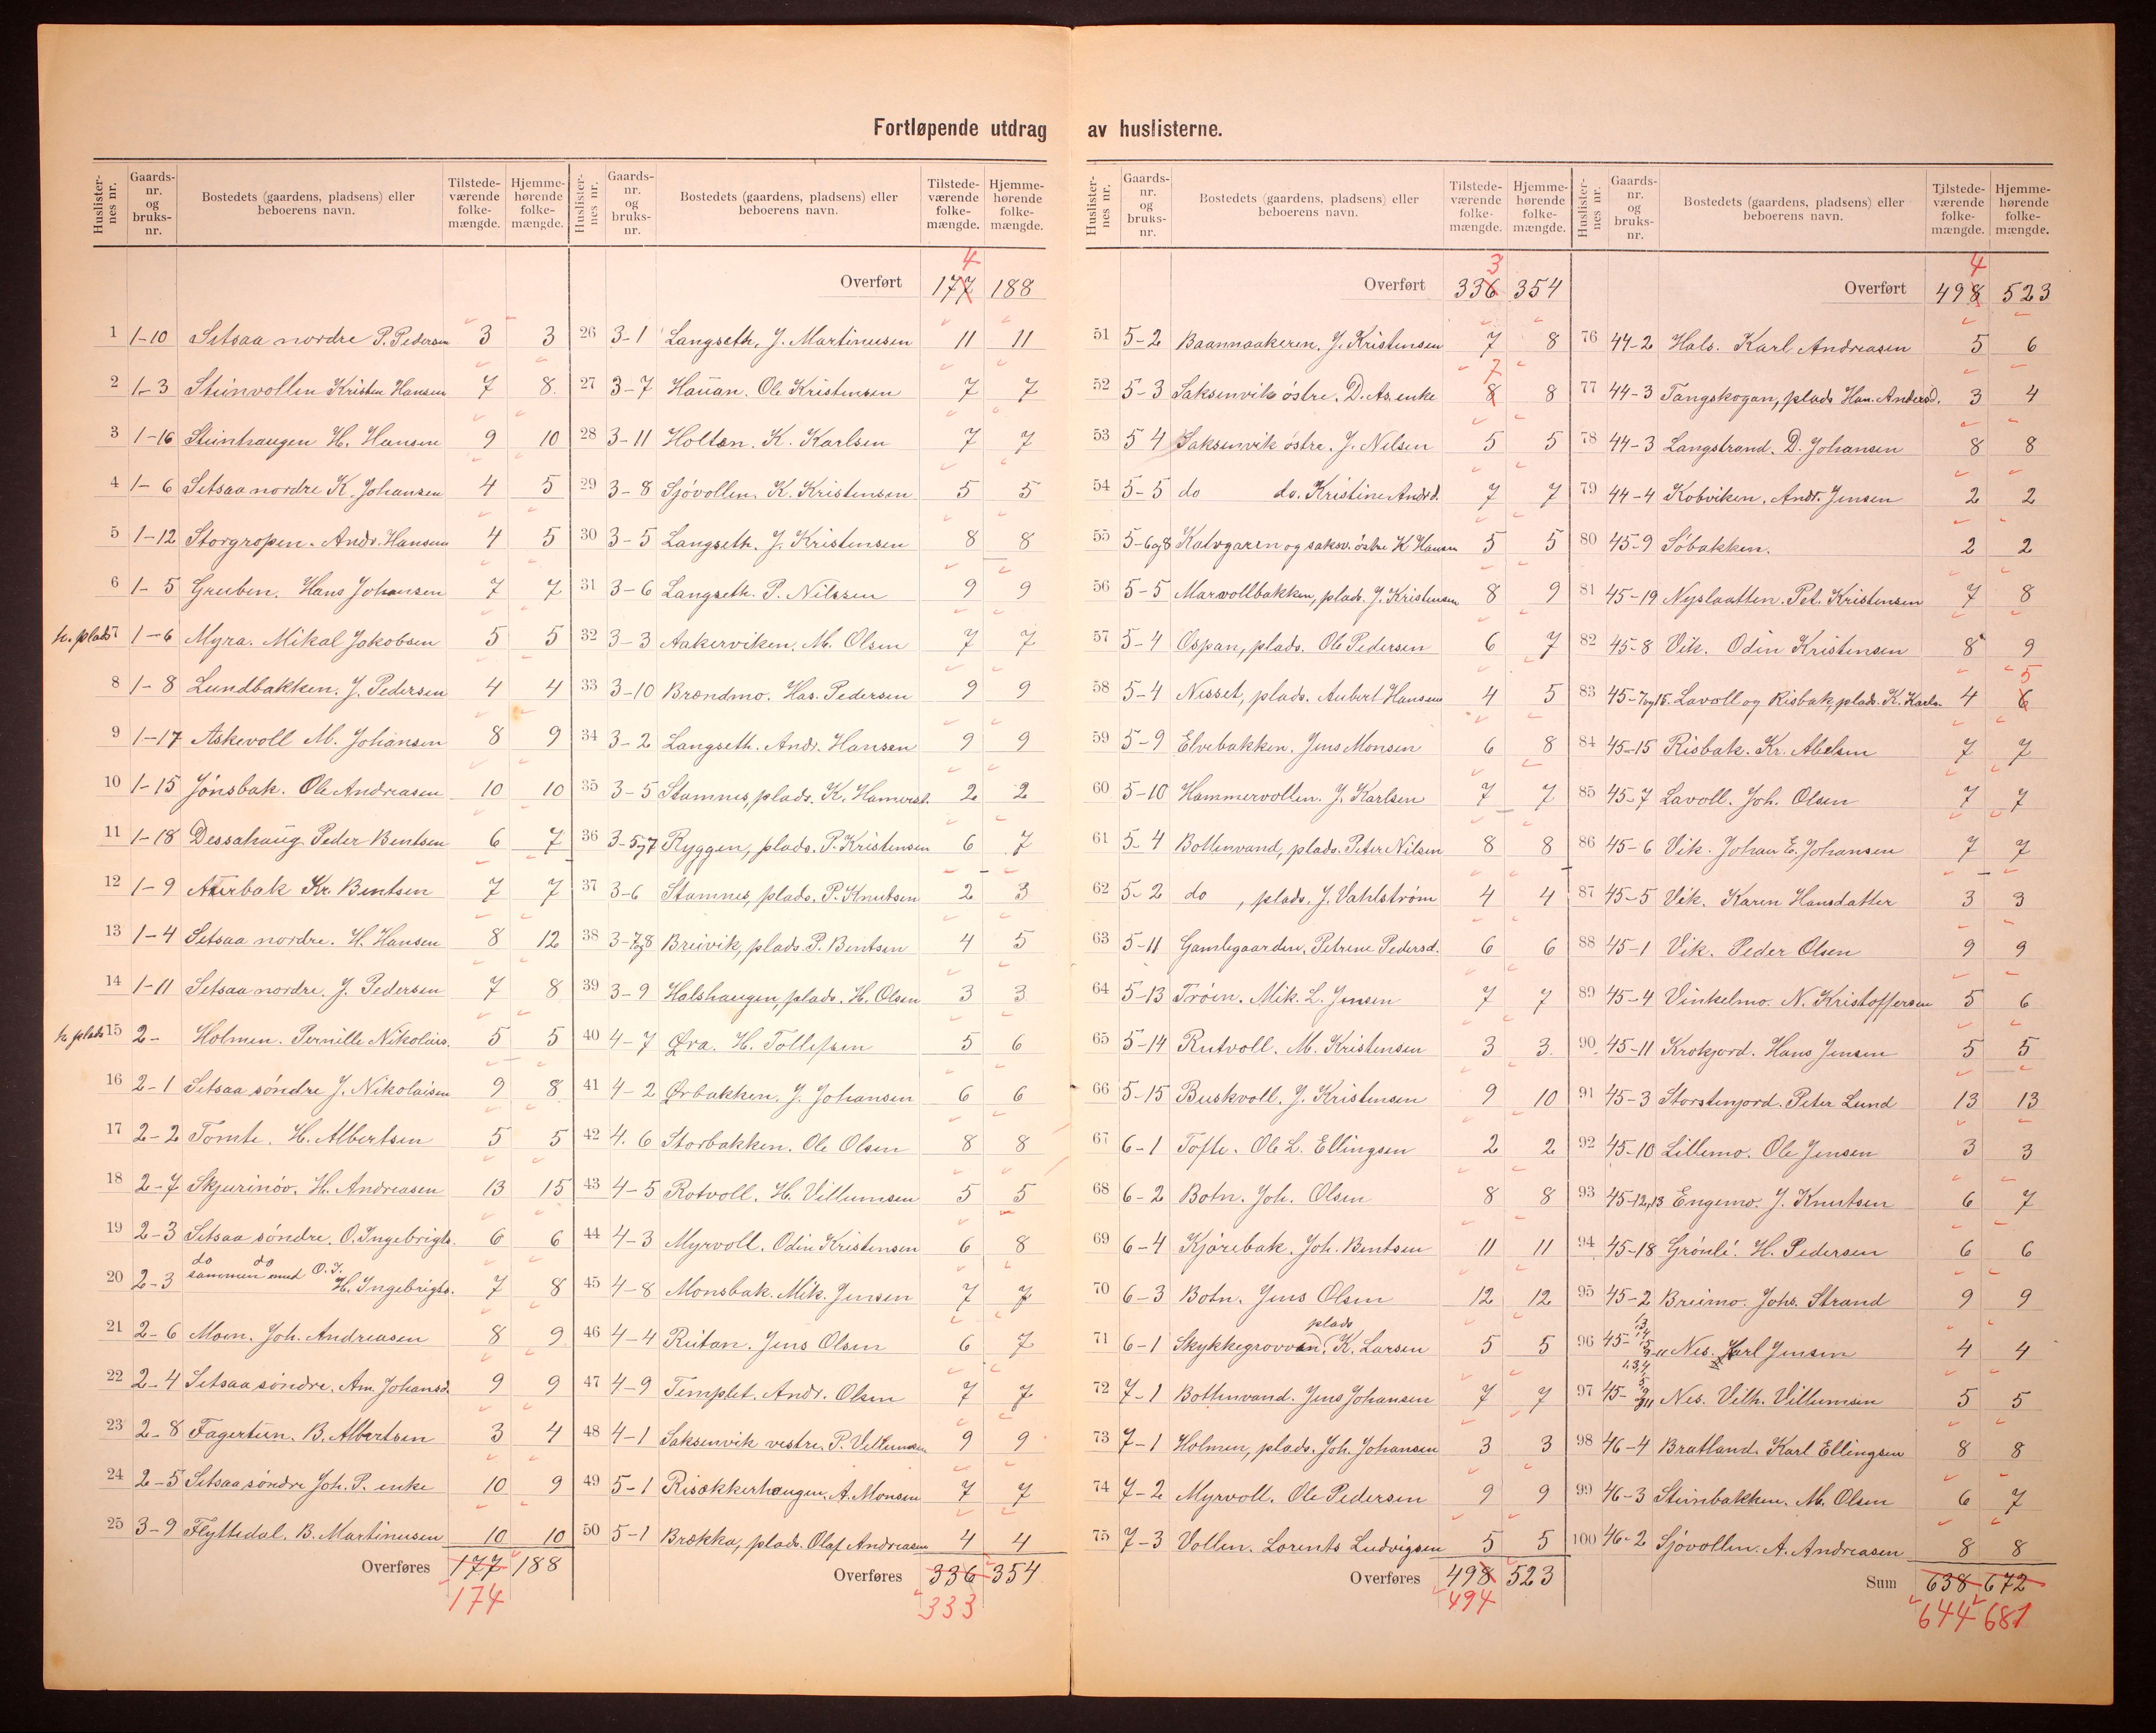 Fortløpende utdrag av huslisterne.
Huslisternes nr. Gaards-nr. og bruks-nr. Bostedets (gaardens, pladsens) eller beboerens navn. Tilstede-værende folke-mængde. Hjemme-hørende folke-mængde.
1 1-10 Setsaa nordre P. Pedersen 3 3
2 1-3 Steinvollen Kristen Hansen 7 8
3 1-16 Steinhaugen H. Hansen 9 10
4 1-6 Setsaa nordre K. Johansen 4 5
5 1-12 Storgropen. Andr. Hansen 4 5
6 1-5 Gruben. Hans Johansen 7 7
h. plads 7 1-6 Myra. Mikal Jakobsen 5 5
8 1-8 Lundbakken. J. Pedersen 4 4
9 1-17 Askevoll M. Johansen 8 9
10 1-15 Jönsbak. Ole Andreasen 10 10
11 1-18 Dessahaug Peder Bentsen 6 7
12 1-9 Aurbak Kr. Bentsen 7 7
13 1-4 Setsaa nordre. H. Hansen 8 12
14 1-11 Setsaa nordre. J. Pedersen 7 8
h. plads 15 2- Holmen. Pernille Nikolais. 5 5
16 2-1 Setsaa söndre J. Nikolaisen 9 8
17 2-2 Tomte. H. Albertsen 5 5
18 2-7 Skjurinöv. H. Andreasen 13 15
19 2-3 Setsaa söndre. O. Ingebrigts. 6 6
20 2-3 do do sammen med O. I. H. Ingebrigts. 7 8
21 2-6 Moen. Joh. Andreasen 8 9
22 2-4 Setsaa söndre. Am. Johansd. 9 9
23 2-8 Fagertun. B. Albertsen 3 4
24 2-5 Setsaa söndre Joh. P. enke 10 9
25 3-9 Flyttedal. B. Martinusen 10 10
Overføres 177 188
174
Huslisternes nr. Gaards-nr. og bruks-nr. Bostedets (gaardens, pladsens) eller beboerens navn. Tilstede-værende folke-mængde. Hjemme-hørende folke-mængde.
4
Overført 177 188
26 3-1 Langseth, J. Martinusen 11 11
27 3-7 Hauan. Ole Kristensen 7 7
28 3-11 Holten. K. Karlsen 7 7
29 3-8 Sjövollen. K. Kristensen 5 5
30 3-5 Langseth. J. Kristensen 8 8
31 3-6 Langseth. P. Nilssen 9 9
32 3-3 Aakerviken. M. Olsen 7 7
33 3-10 Brændmo. Has. Pedersen 9 9
34 3-2 Langseth. Andr. Hansen 9 9
35 3-5 Stamnes, plads. K. Hamerst. 2 2
36 3-5og7 Ryggen, plads. P. Kristensen 6 7
37 3-6 Stamnes, plads. P. Knutsen 2 3
38 3-7og8 Breivik, plads. P. Bentsen 4 5
39 3-9 Halshaugen, plads. H. Olsen 3 3
40 4-7 Øra. H. Tollefsen 5 6
41 4-2 Ørbakken. J. Johansen 6 6
42 4.6 Storbakken. Ole Olsen 8 8
43 4-5 Rotvoll. H. Villumsen 5 5
44 4-3 Myrvoll. Odin Kristensen 6 8
45 4-8 Monsbak. Mik. Jensen 7 7
46 4-4 Reitan. Jens Olsen 6 7
47 4-9 Templet. Andr. Olsen 7 7
48 4-1 Saksenvik vestre. P. Villumsen 9 9
49 5-1 Risækkerhaugen. A. Monsen 7 7
50 5-1 Brækka, plads. Olaf Andreasen 4 4
Overføres 336 354
333
Huslisternes nr. Gaards-nr. og bruks-nr. Bostedets (gaardens, pladsens) eller beboerens navn. Tilstede-værende folke-mængde. Hjemme-hørende folke-mængde.
3
Overført 336 354
51 5-2 Baannaakeren. J. Kristensen 7 8
7
52 5-3 Saksenvik östre. D. As. enke 8 8
53 5 4 Saksenvik östre. J. Nelsen 5 5
54 5-5 do do. Kristine Andrd. 7 7
55 5-6og8 Kalvgaren og saksv. östre K Hansen 5 5
56 5-5 Marvollbakken, plads. J. Kristensen 8 9
57 5-4 Ospan, plads. Ole Pedersen 6 7
58 5-4 Nesset, plads. Aubert Hansen 4 5
59 5-9 Elvebakken. Jens Monsen 6 8
60 5-10 Hammervollen. J. Karlsen 7 7
61 5-4 Bottenvand, plads. Peter Nilsen 8 8
62 5-2 do , plads. J. Vahlström 4 4
63 5-11 Gamlegaarden. Petrine Pedersd. 6 6
64 5-13 Tröen. Mik. L. Jensen 7 7
65 5-14 Rutvoll. M. Kristensen 3 3
66 5-15 Buskvoll. J. Kristensen 9 10
67 6-1 Tofte. Ole L. Ellingsen 2 2
68 6-2 Botn. Joh. Olsen 8 8
69 6-4 Kjörebak. Joh. Bentsen 11 11
70 6-3 Botn. Jens Olsen 12 12
71 6-1 Skykkegrovvan, plads K. Larsen 5 5
72 7-1 Bottenvand. Jens Johansen 7 7
73 7-1 Holmen, plads. Joh. Johansen 3 3
74 7-2 Myrvoll. Ole Pedersen 9 9
75 7-3 Vollen. Lorents Ludvigsen 5 5
Overføres 498 523
494
Huslisternes nr. Gaards-nr. og bruks-nr. Bostedets (gaardens, pladsens) eller beboerens navn. Tilstede-værende folke-mængde. Hjemme-hørende folke-mængde.
4
Overført 498 523
76 44-2 Hals. Karl Andreasen 5 6
77 44-3 Tangskogan, plads Han. Andersd. 3 4
78 44-3 Langstrand. D. Johansen 8 8
79 44-4 Kobviken. Andr. Jensen 2 2
80 45-9 Söbakken. 2 2
81 45-19 Nyslaatten. Pet. Kristensen 7 8
82 45-8 Vik. Odin Kristensen 8 9
5
83 45-7og15. Lavoll og Risbak, plads. K. Karls. 4 6
84 45-15 Risbak. Kr. Abelsen 7 7
85 45-7 Lavoll. Joh. Olsen 7 7
86 45-6 Vik. Johan E. Johansen 7 7
87 45-5 Vik. Karen Hansdatter 3 3
88 45-1 Vik. Peder Olsen 9 9
89 45-4 Vinkelmo. N. Kristoffersen 5 6
90 45-11 Krokjord. Hans Jensen 5 5
91 45-3 Storstenjord. Peter Lund 13 13
92 45-10 Lillemo. Ole Jensen 3 3
93 45-12,13 Engemo. J. Knutsen 6 7
94 45-18 Grönli. H. Pedersen 6 6
95 45-2 Breimo. Johs. Strand 9 9
96 45- Nes. Karl Jensen 4 4
97 45- Nes. Vilh. Villumsen 5 5
98 46-4 Bratland. Karl Ellingsen 8 8
99 46-3 Steinbakken. M. Olsen 6 7
100 46-2 Sjövollen. A. Andreasen 8 8
Sum 638 672
644 681